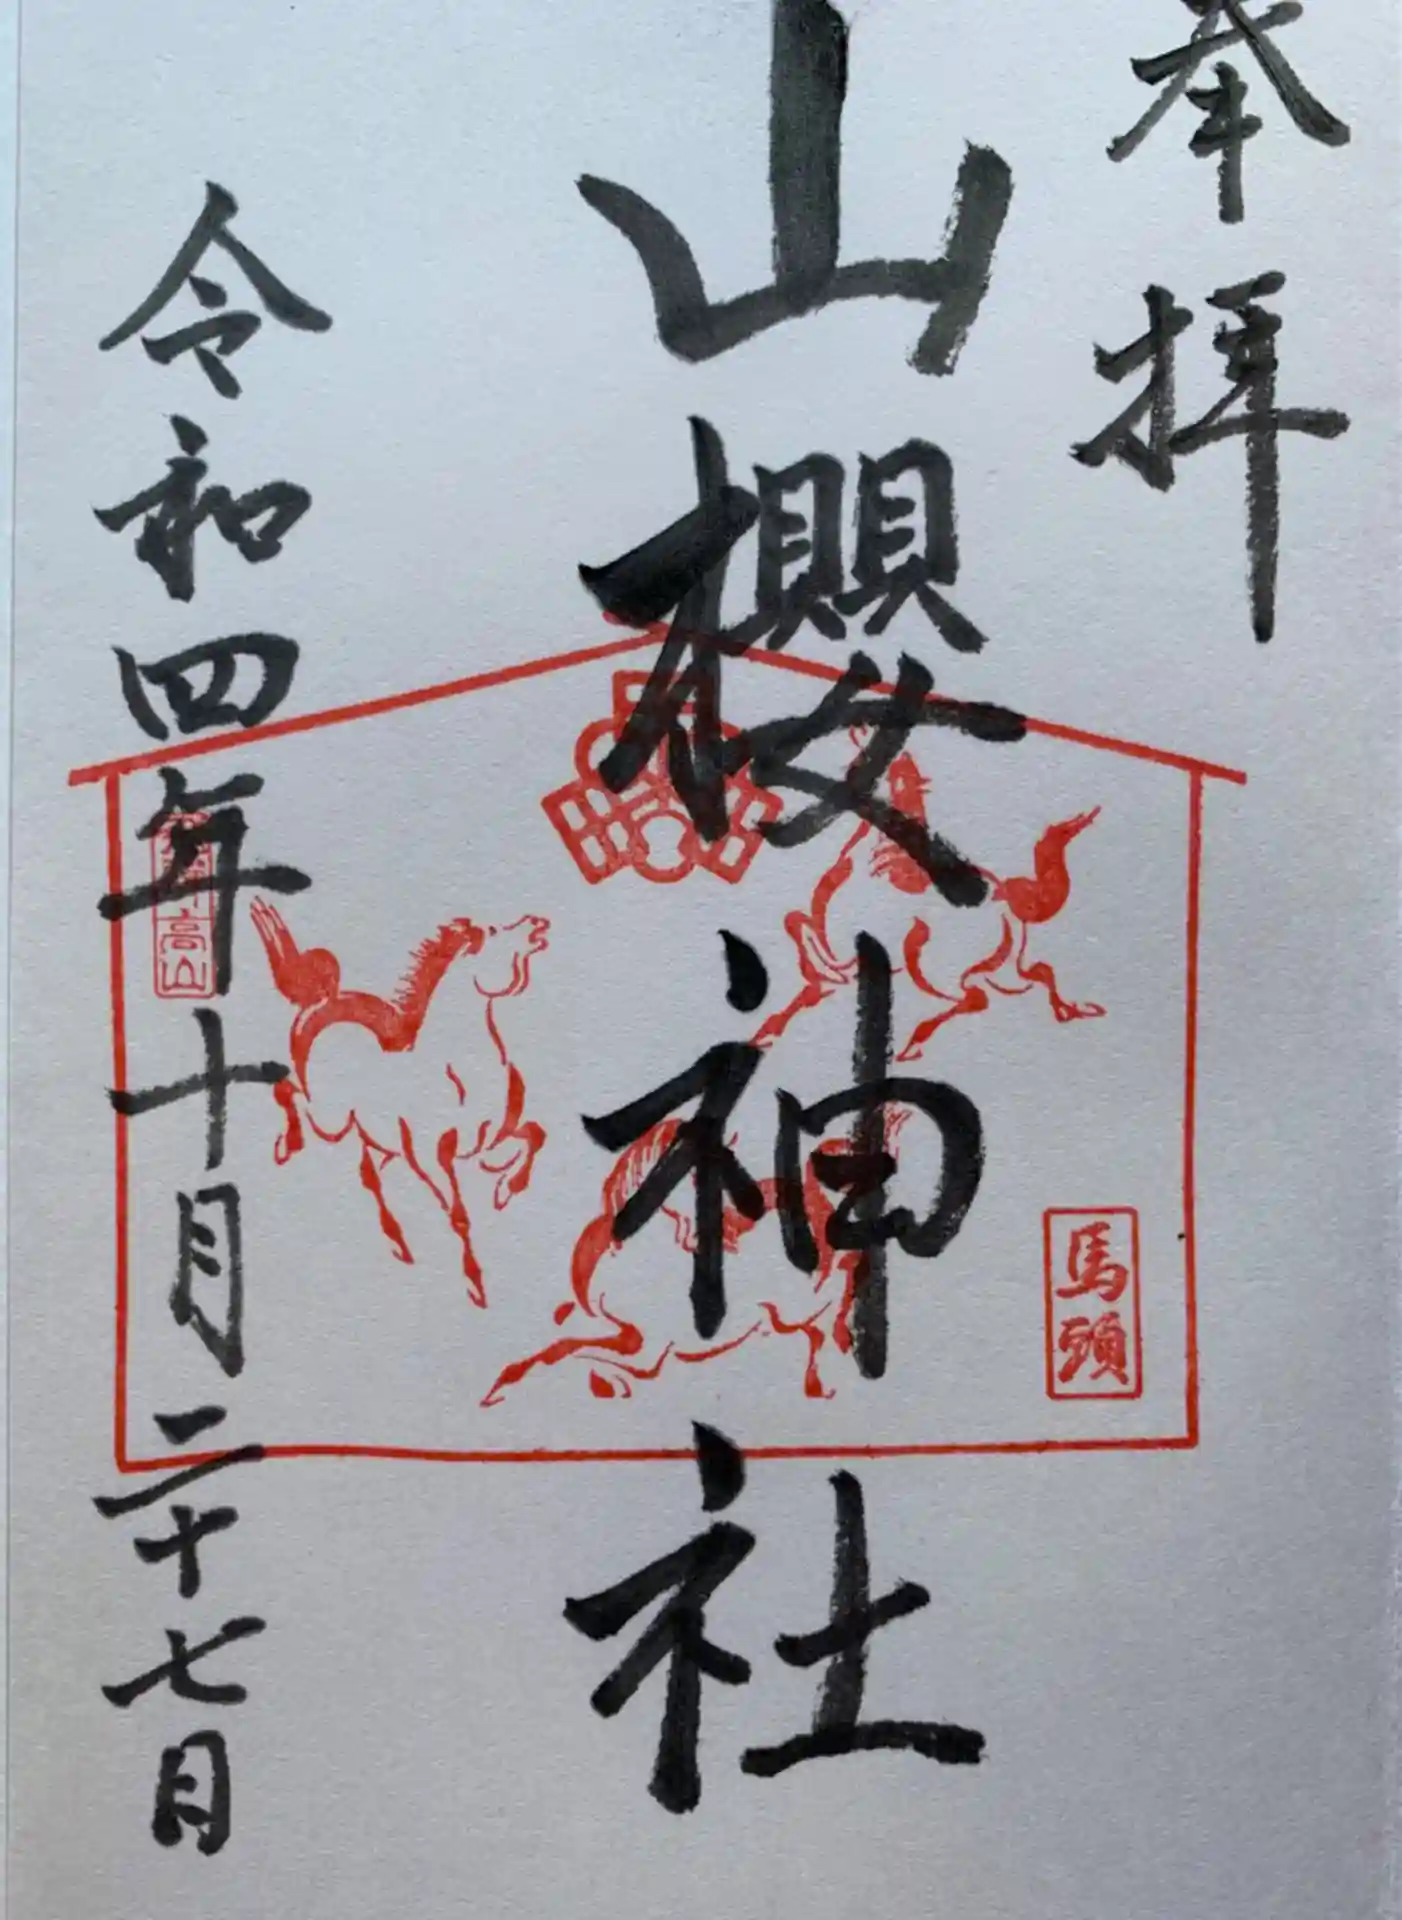 奉拝
山櫻神社
馬頭
令和四年十月二十七日
高山